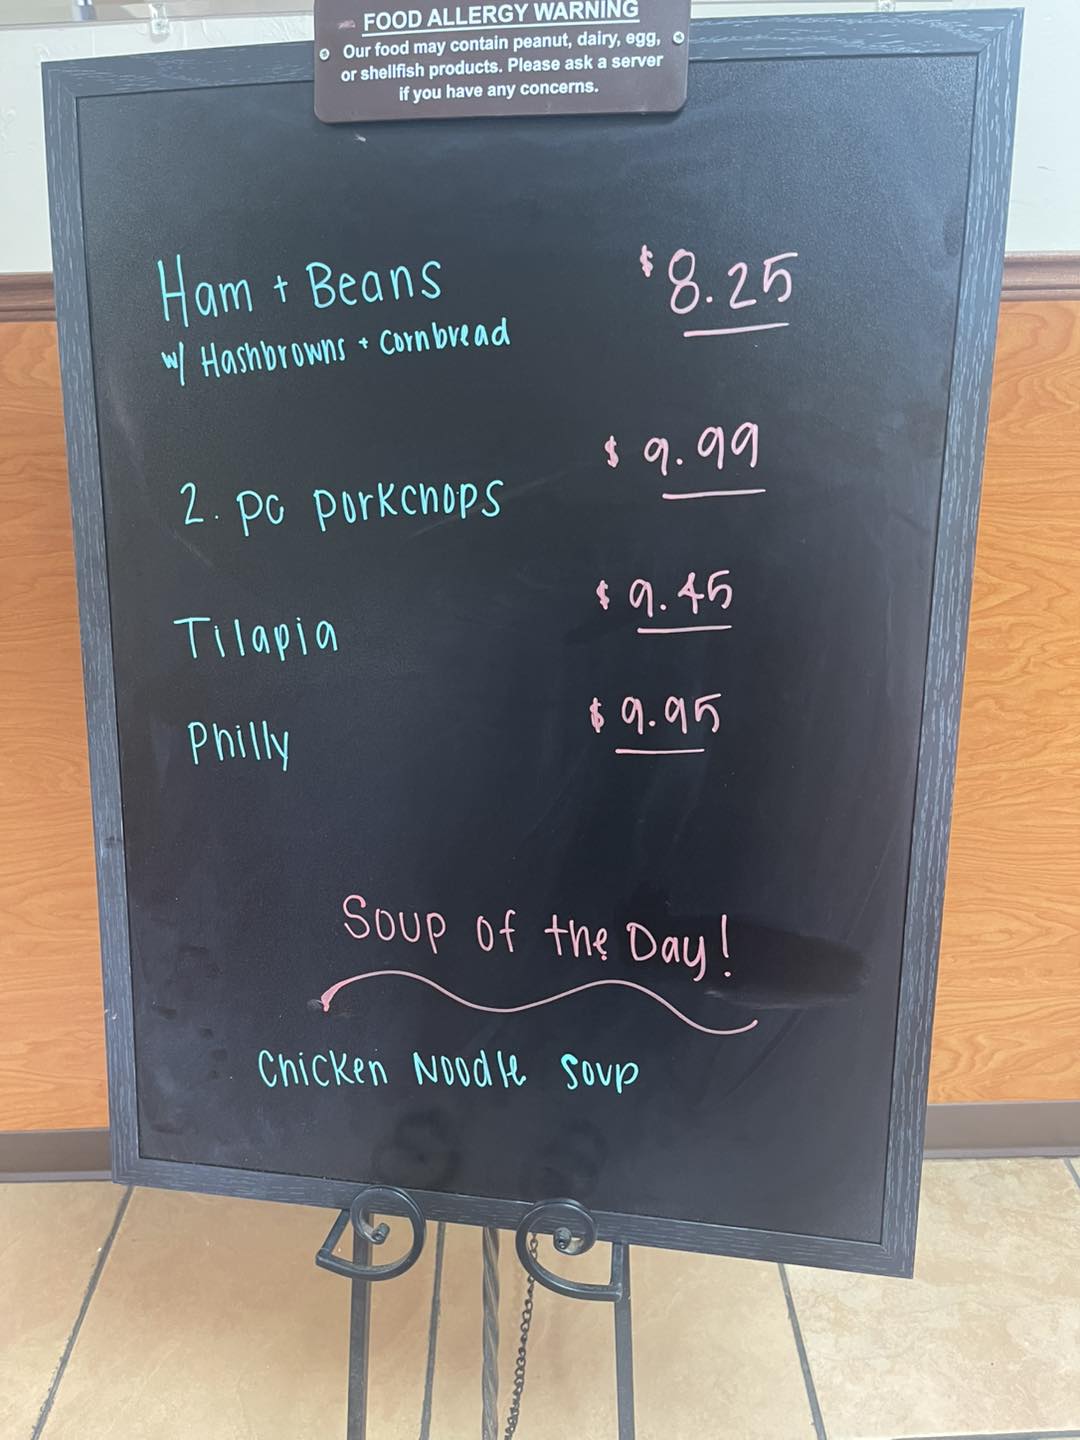 FOOD ALLERGY WARNING
Our food may contain peanut, dairy, egg,
or shellfish products. Please ask a server
if you have any concerns.
Ham + Beans $8.25
w/ Hashbrowns + Cornbread
2. pc porkchops $9.99
Tilapia $9.45
Philly $9.95
Soup of the Day!
Chicken Noodle Soup